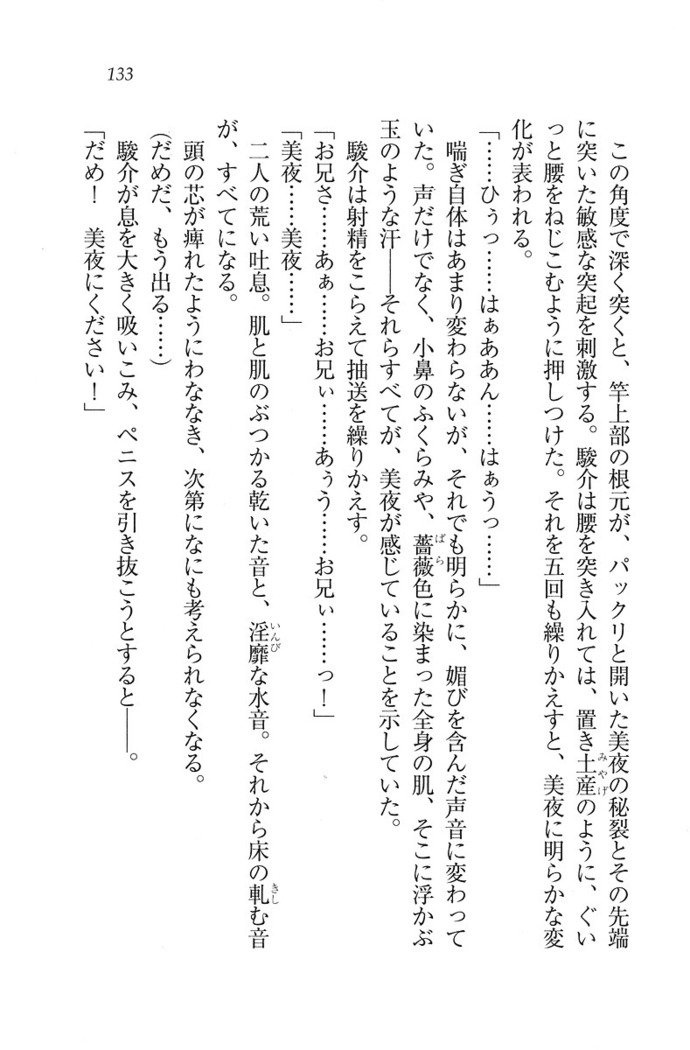 133
この角度で深く突くと、竿上部の根元が、パックリと開いた美夜の秘裂とその先端
に突いた敏感な突起を刺激する。駿介は腰を突き入れては、置き土産のように、ぐい
っと腰をねじこむように押しつけた。それを五回も繰りかえすと、美夜に明らかな変
化が表われる。
「……ひぅっ……はぁああん……はぁうっ……」
喘ぎ自体はあまり変わらないが、それでも明らかに、媚びを含んだ声音に変わって
いた。声だけでなく、小鼻のふくらみや、薔薇色に染まった全身の肌、そこに浮かぶ
玉のような汗——それらすべてが、美夜が感じていることを示していた。
駿介は射精をこらえて抽送を繰りかえす。
「お兄さ……あぁ……お兄ぃ……あぅう……お兄ぃ……っ！」
「美夜……美夜……」
二人の荒い吐息。肌と肌のぶつかる乾いた音と、淫靡な水音。それから床の軋む音
が、すべてになる。
頭の芯が痺れたようにわななき、次第になにも考えられなくなる。
(だめだ、もう出る……)
駿介が息を大きく吸いこみ、ペニスを引き抜こうとすると——。
「だめ！　美夜にください！」